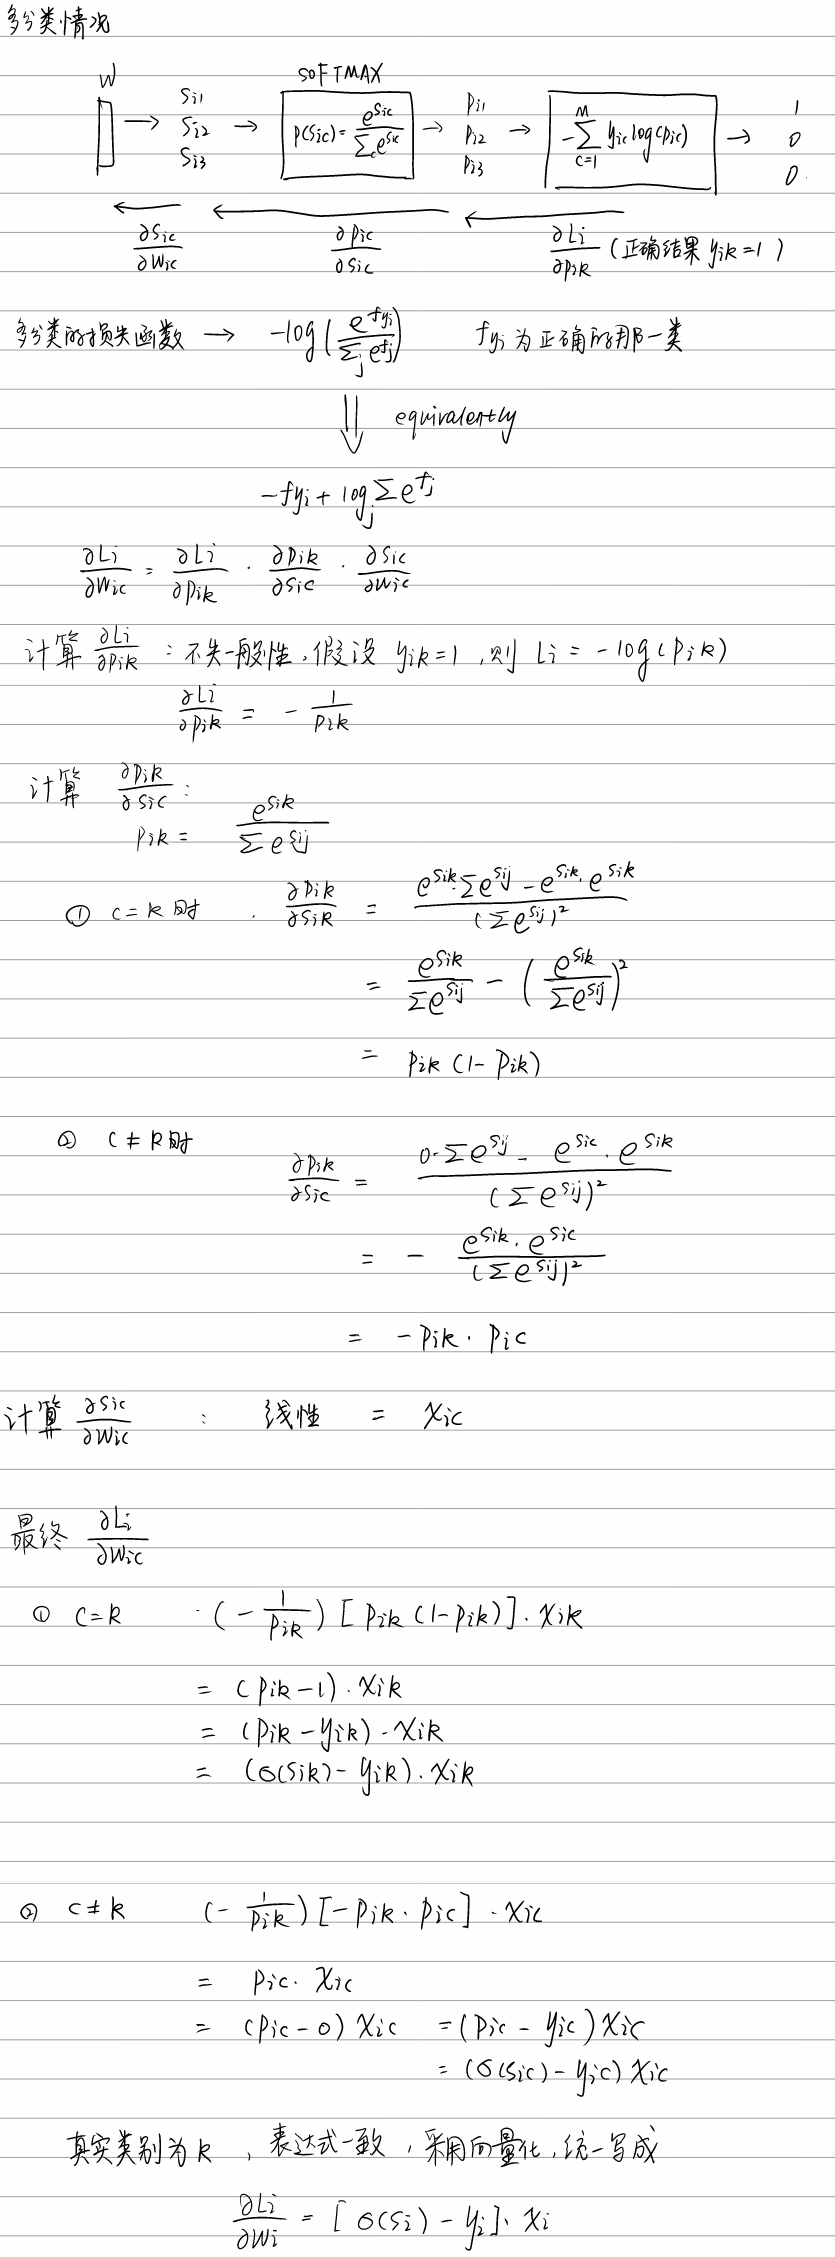 多分类情况
W
Si1 Si2 Si3
SOFTMAX
p(Sic) = e^Sic / Σc e^Sic
Pi1 Pi2 Pi3
-Σ_{c=1}^{M} yic log(pic)
1 0 0
∂Sic/∂Wic ∂pic/∂Sic ∂Li/∂pik (正确结果 yik=1)
多分类的损失函数 → -log(e^fyi / Σj e^fj) fyi 为正确的那一类
⇓ equivalently
-fyi + log Σj e^fj
∂Li/∂Wic = ∂Li/∂pik · ∂pik/∂Sic · ∂Sic/∂Wic
计算 ∂Li/∂pik : 不失一般性, 假设 yik=1, 则 Li = -log(pik)
∂Li/∂pik = - 1/pik
计算 ∂pik/∂Sic :
pik = e^Sik / Σ e^Sij
① c=k时 . ∂pik/∂Sik = (e^Sik · Σe^Sij - e^Sik · e^Sik) / (Σe^Sij)²
= e^Sik / Σe^Sij - (e^Sik / Σe^Sij)²
= pik (1-pik)
② c≠k时
∂pik/∂Sic = (0·Σe^Sij - e^Sic · e^Sik) / (Σe^Sij)²
= - (e^Sik · e^Sic) / (Σe^Sij)²
= -pik · pic
计算 ∂Sic/∂Wic : 线性 = Xic
最终 ∂Li/∂Wic
① c=k · (- 1/pik) [pik (1-pik)] · Xik
= (pik-1) · Xik
= (pik-yik) · Xik
= (σ(Sik)-yik) · Xik
② c≠k (- 1/pik) [-pik · pic] · Xic
= pic · Xic
= (pic-0) Xic = (pic-yic) Xic
= (σ(Sic)-yic) Xic
真实类别为k, 表达式一致, 采用向量化, 统一写成
∂Li/∂Wi = [σ(Si)-yi] · Xi